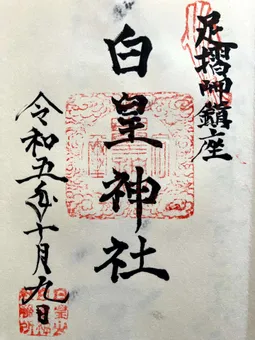 足摺岬鎮座
白皇神社
令和五年十月九日